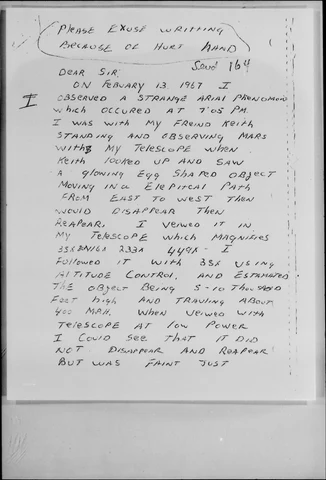 PLEASE EXCUSE WRITTING
BECAUSE OF HURT HAND
Send 164
DEAR SIR
ON FEBUARY 13 1967 I
OBSERVED A STRANGE ARIAL PHENOMON
WHICH OCCURED AT 7:05 PM.
I WAS WITH MY FREIND KEITH
STANDING AND OBSERVING MARS
WITH MY TELESCOPE WHEN
KEITH LOOKED UP AND SAW
A GLOWING EGG SHAPED OBJECT
MOVING IN A ELEPITCAL PATH
FROM EAST TO WEST THEN
WOULD DISAPPEAR THEN
REAPEAR. I VEIWED IT IN
MY TELESCOPE WHICH MAGNIFIES
35X 233X 449X - I
FOLLOWED IT WITH 35X USING
ALTITUDE CONTROL, AND ESTAMATED
THE OBJECT BEING 5-10 THOUSAND
FEET HIGH AND TRAVLING ABOUT
400 M.P.H. WHEN VEIWED WITH
TELESCOPE AT LOW POWER
I COULD SEE THAT IT DID
NOT DISAPPEAR AND REAPEAR
BUT WAS FAINT JUST